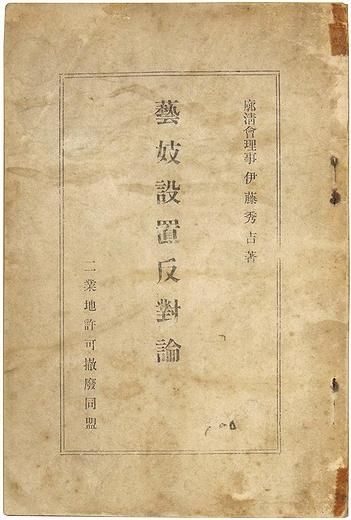 廓清會理事 伊藤秀吉著
藝妓設置反對論
二業地許可撤廢同盟